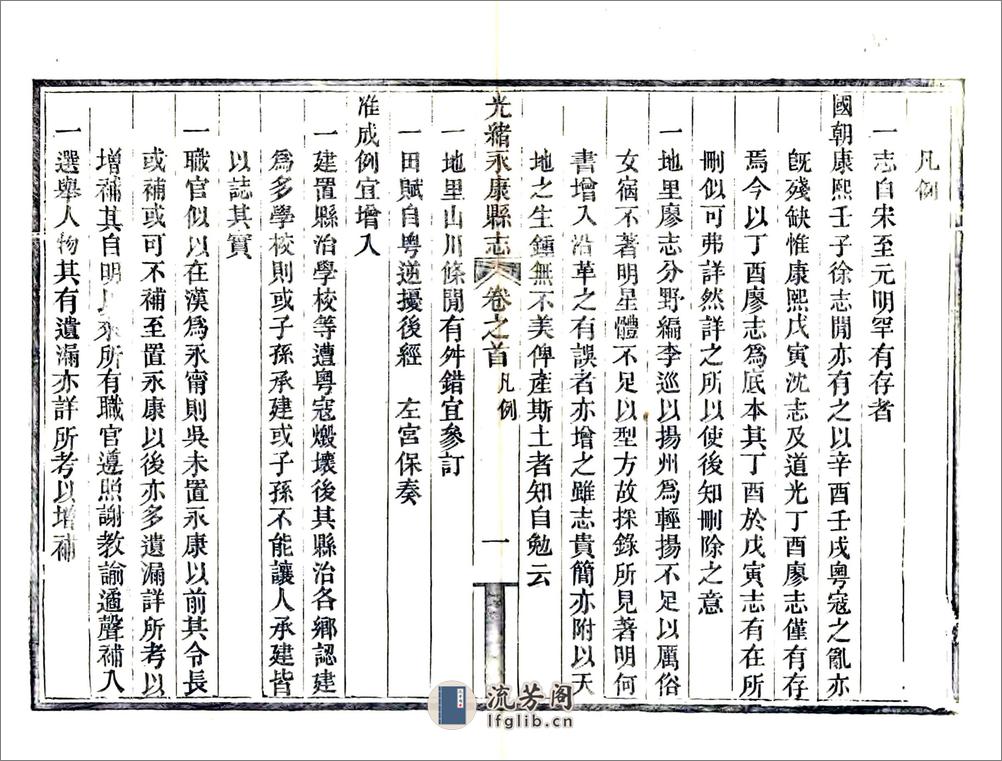 凡例
一志自宋至元明罕有存者
國朝康熙壬子徐志閒亦有之以辛酉壬戌粵寇之亂亦
旣殘缺惟康熙戊寅沈志及道光丁酉廖志僅有存
焉今以丁酉廖志為底本其丁酉於戊寅志有在所
刪似可弗詳然詳之所以使後知刪除之意
一地里廖志分野編李巡以揚州為輕揚不足以厲俗
女宿不著明星體不足以型方故採錄所見著明何
書增入沿革之有誤者亦增之雖志貴簡亦附以天
地之生鍾無不美俾產斯土者知自勉云
光緒永康縣志 卷之首 凡例 一
一地里山川條閒有舛錯宜參訂
一田賦自粵逆擾後經 左宮保奏
准成例宜增入
一建置縣治學校等遭粵寇燬壞後其縣治各鄉認建
為多學校則或子孫承建或子孫不能讓人承建皆
以誌其實
一職官似以在漢為永甯則吳未置永康以前其令長
或補或可不補至置永康以後亦多遺漏詳所考以
增補其自明以來所有職官遵照謝教諭遹聲補入
一選舉人物其有遺漏亦詳所考以增補
流芳阁
lfglib.cn